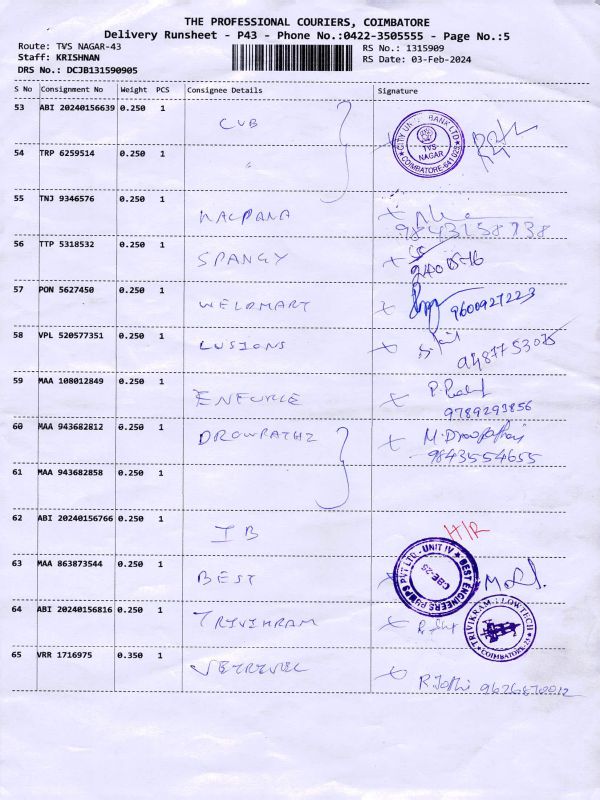 THE PROFESSIONAL COURIERS, COIMBATORE
Delivery Runsheet - P43 - Phone No.:0422-3505555 - Page No.:5
Route: TVS NAGAR-43 RS No.: 1315909
Staff: KRISHNAN RS Date: 03-Feb-2024
DRS No.: DCJB131590905
S No Consignment No Weight PCS Consignee Details Signature
53 ABI 20240156639 0.250 1 CUB
CITY UNION BANK LTD TVS NAGAR COIMBATORE-641 025
54 TRP 6259514 0.250 1 "
55 TNJ 9346576 0.250 1 KALPANA
9843158738
56 TTP 5318532 0.250 1 SPANGY
57 PON 5627450 0.250 1 WELDMART 9600927223
58 VPL 520577351 0.250 1 LUSIONS
9487753075
59 MAA 108012849 0.250 1
9789293856
60 MAA 943682812 0.250 1 M. 
9843554655
61 MAA 943682858 0.250 1
62 ABI 20240156766 0.250 1 IB H/R
63 MAA 863873544 0.250 1 BEST
BEST ENGINEERS PUMPS PVT LTD - UNIT IV CBE-25
64 ABI 20240156816 0.250 1 TRIVIKRAM
TRIVIKRAM FLOWTECH COIMBATORE-21
65 VRR 1716975 0.350 1 VETRIVEL
R. Jothi